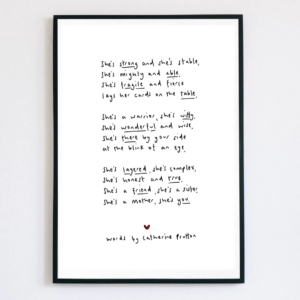 She's strong and she's stable,
She's mighty and able,
She's fragile and fierce
lays her cards on the table.
She's a warrior, she's witty,
She's wonderful and wise,
She's there by your side
at the blink of an eye.
She's layered, she's complex,
She's honest and true
She's a friend, she's a sister,
She's a mother, she's you.
words by Catherine Prutton